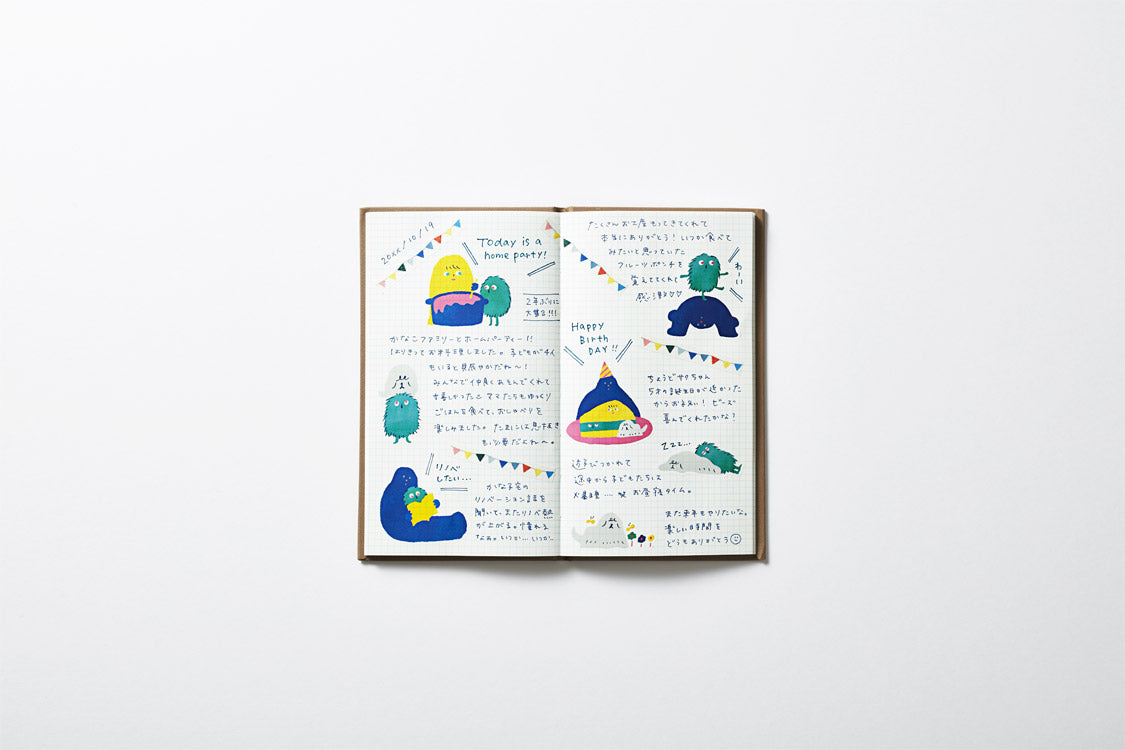 20XX/10/19
Today is a
home party!
2年ぶりに
大集合!!!
かなこファミリーとホームパーティー!!
はりきってお料理しました。子どもが4人
もいると賑やかだね〜!
みんなで仲良くあそんでくれて
すばしかったこママたちもゆっくり
ごはんを食べて、おしゃべりを
楽しみました。たまには息抜き
も必要だよね〜。
リノベ
したい...
かな子宅の
リノベーション話を
聞いて、またリノベ熱
が上がる。憧れる
なぁ。いつか...いつか...
たくさんお土産もってきてくれて
本当にありがとう!いつか食べて
みたいと思っていた
フルーツポンチを
覚えててくれて
感激♡♡
わーい
Happy
Birth
DAY!!
ちょうどサクちゃん
5才の誕生日が近かった
からお祝い!ビーズ
喜んでくれたかな?
ZZZ...
遊びつかれて
途中から子どもたちは
お昼寝...笑 お昼寝タイム。
また来年もやりたいな。
楽しい時間を
どうもありがとう